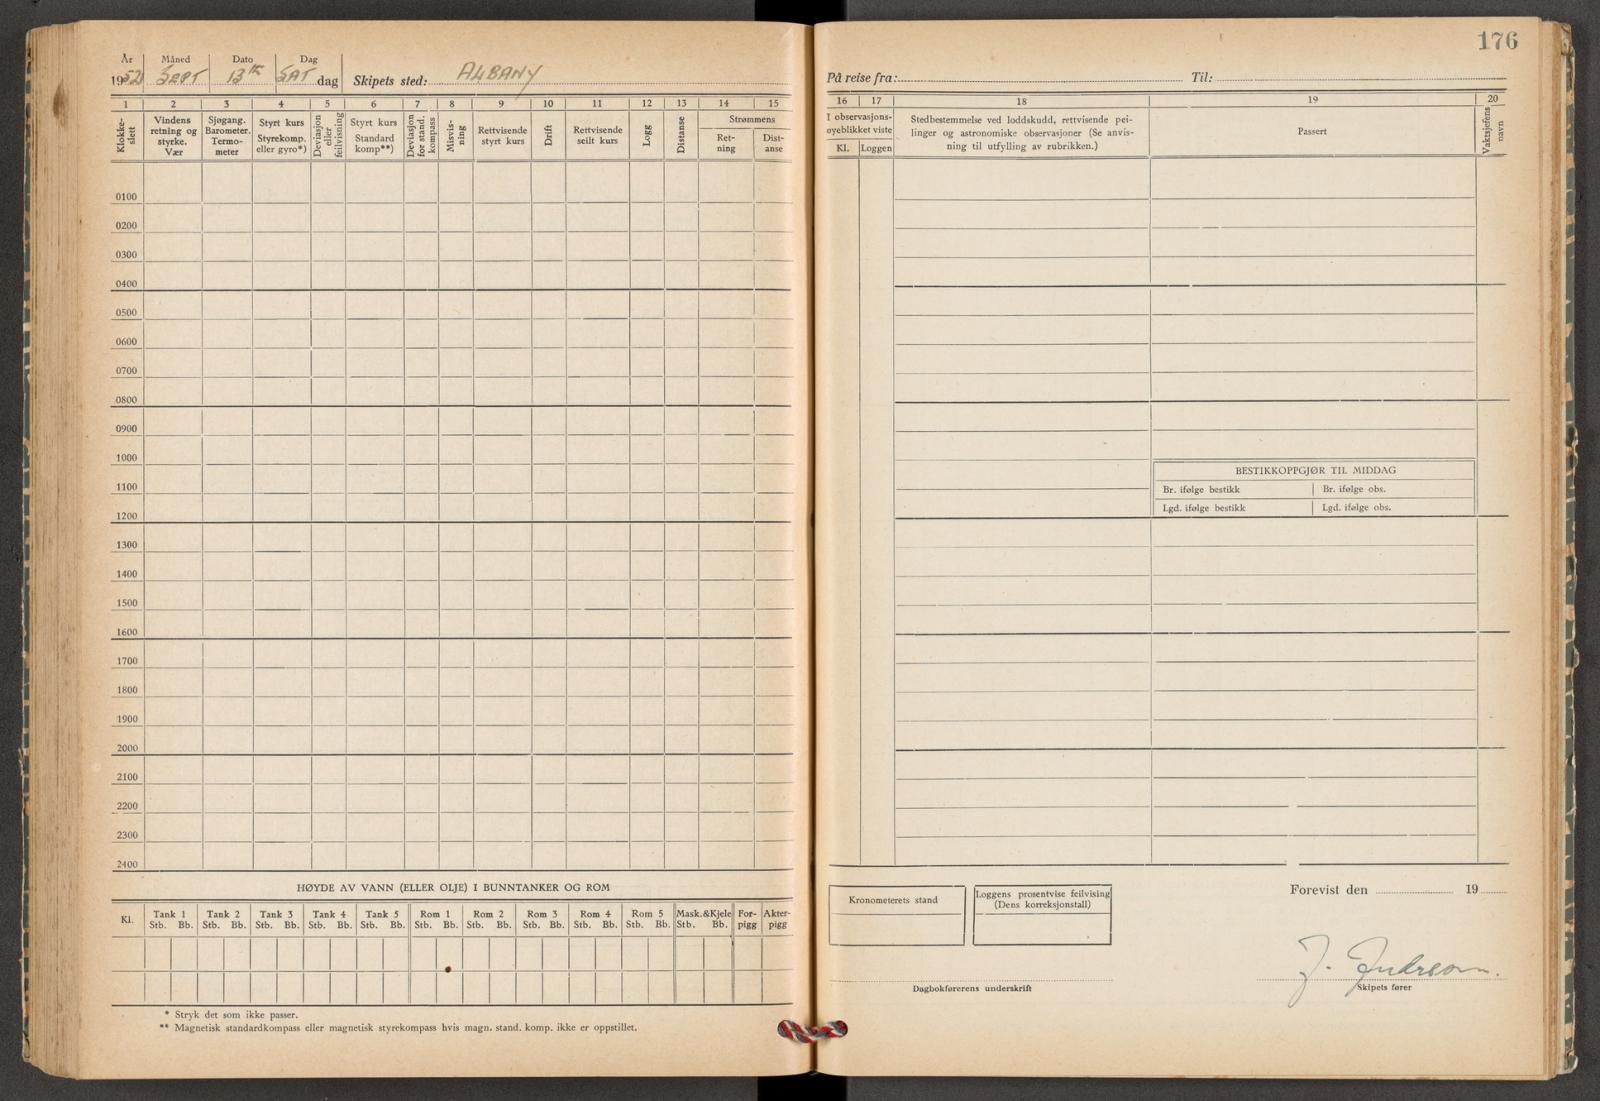 176
År Måned Dato Dag
1952 SEPT 13th SAT dag Skipets sted: ALBANY
På reise fra: Til:
1 2 3 4 5 6 7 8 9 10 11 12 13 14 15
16 17 18 19 20
Klokke-slett
Vindens retning og styrke. Vær
Sjøgang. Barometer. Termo-meter
Styrt kurs Styrekomp. eller gyro*)
Deviasjon eller feilvisning
Styrt kurs Standard komp**)
Deviasjon for stand. kompass
Misvis-ning
Rettvisende styrt kurs
Drift
Rettvisende seilt kurs
Logg
Distanse
Strømmens
Ret-ning
Dist-anse
I observasjons-øyeblikket viste
Kl. Loggen
Stedbestemmelse ved loddskudd, rettvisende pei-
linger og astronomiske observasjoner (Se anvis-
ning til utfylling av rubrikken.)
Passert
Vaktsjefens navn
0100
0200
0300
0400
0500
0600
0700
0800
0900
1000
1100
1200
1300
1400
1500
1600
1700
1800
1900
2000
2100
2200
2300
2400
BESTIKKOPPGJØR TIL MIDDAG
Br. ifølge bestikk Br. ifølge obs.
Lgd. ifølge bestikk Lgd. ifølge obs.
HØYDE AV VANN (ELLER OLJE) I BUNNTANKER OG ROM
Kl. Tank 1 Tank 2 Tank 3 Tank 4 Tank 5 Rom 1 Rom 2 Rom 3 Rom 4 Rom 5 Mask.&Kjele For-pigg Akter-pigg
Stb. Bb. Stb. Bb. Stb. Bb. Stb. Bb. Stb. Bb. Stb. Bb. Stb. Bb. Stb. Bb. Stb. Bb. Stb. Bb. Stb. Bb.
* Stryk det som ikke passer.
** Magnetisk standardkompass eller magnetisk styrekompass hvis magn. stand. komp. ikke er oppstillet.
Kronometerets stand
Loggens prosentvise feilvisning
(Dens korreksjonstall)
Forevist den 19
Dagbokførerens underskrift
Skipets fører